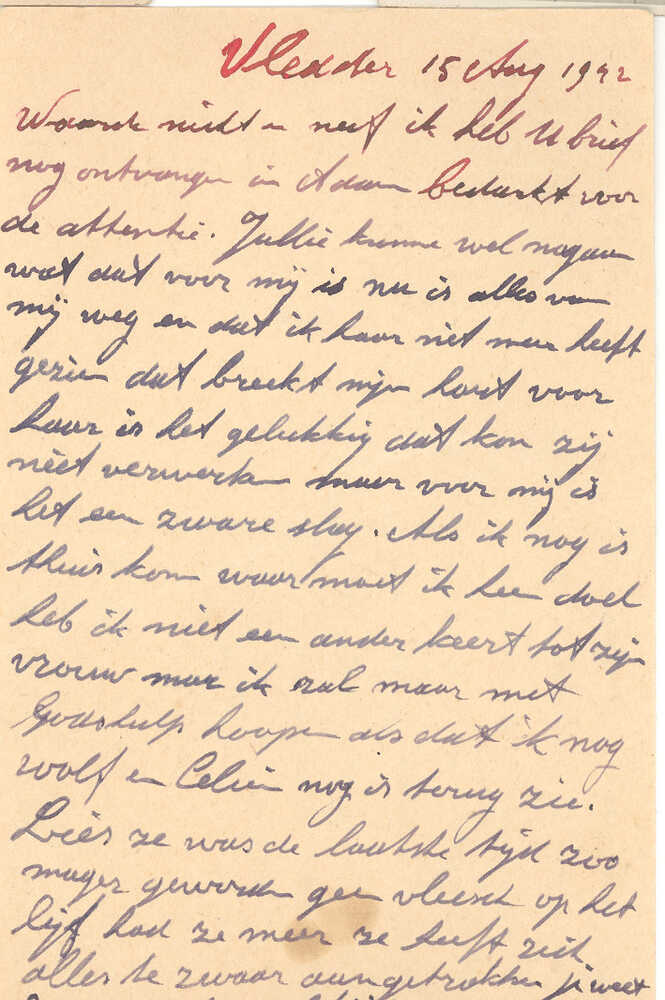 Vledder 15 Aug 1942
Waarde nicht en neef ik heb U brief
nog ontvangen in Adam bedankt voor
de attentie. Jullie kunne wel nagaan
wat dat voor mij is nu is alles van
mij weg en dat ik haar niet meer heeft
gezien dat breekt mijn hart voor
haar is het gelukkig dat kon zij
niet verwerken maar voor mij is
het een zware slag. Als ik nog is
thuis kom waar moet ik heen doel
heb ik niet een ander keert tot zijn
vrouw maar ik zal maar met
Gods hulp hoopen als dat ik nog
wolf en Celien nog is terug zie.
Loies ze was de laatste tijd zoo
mager geworden geen vleesch op het
lijf had ze meer ze heeft zich
alles te zwaar aangetrokken je weet